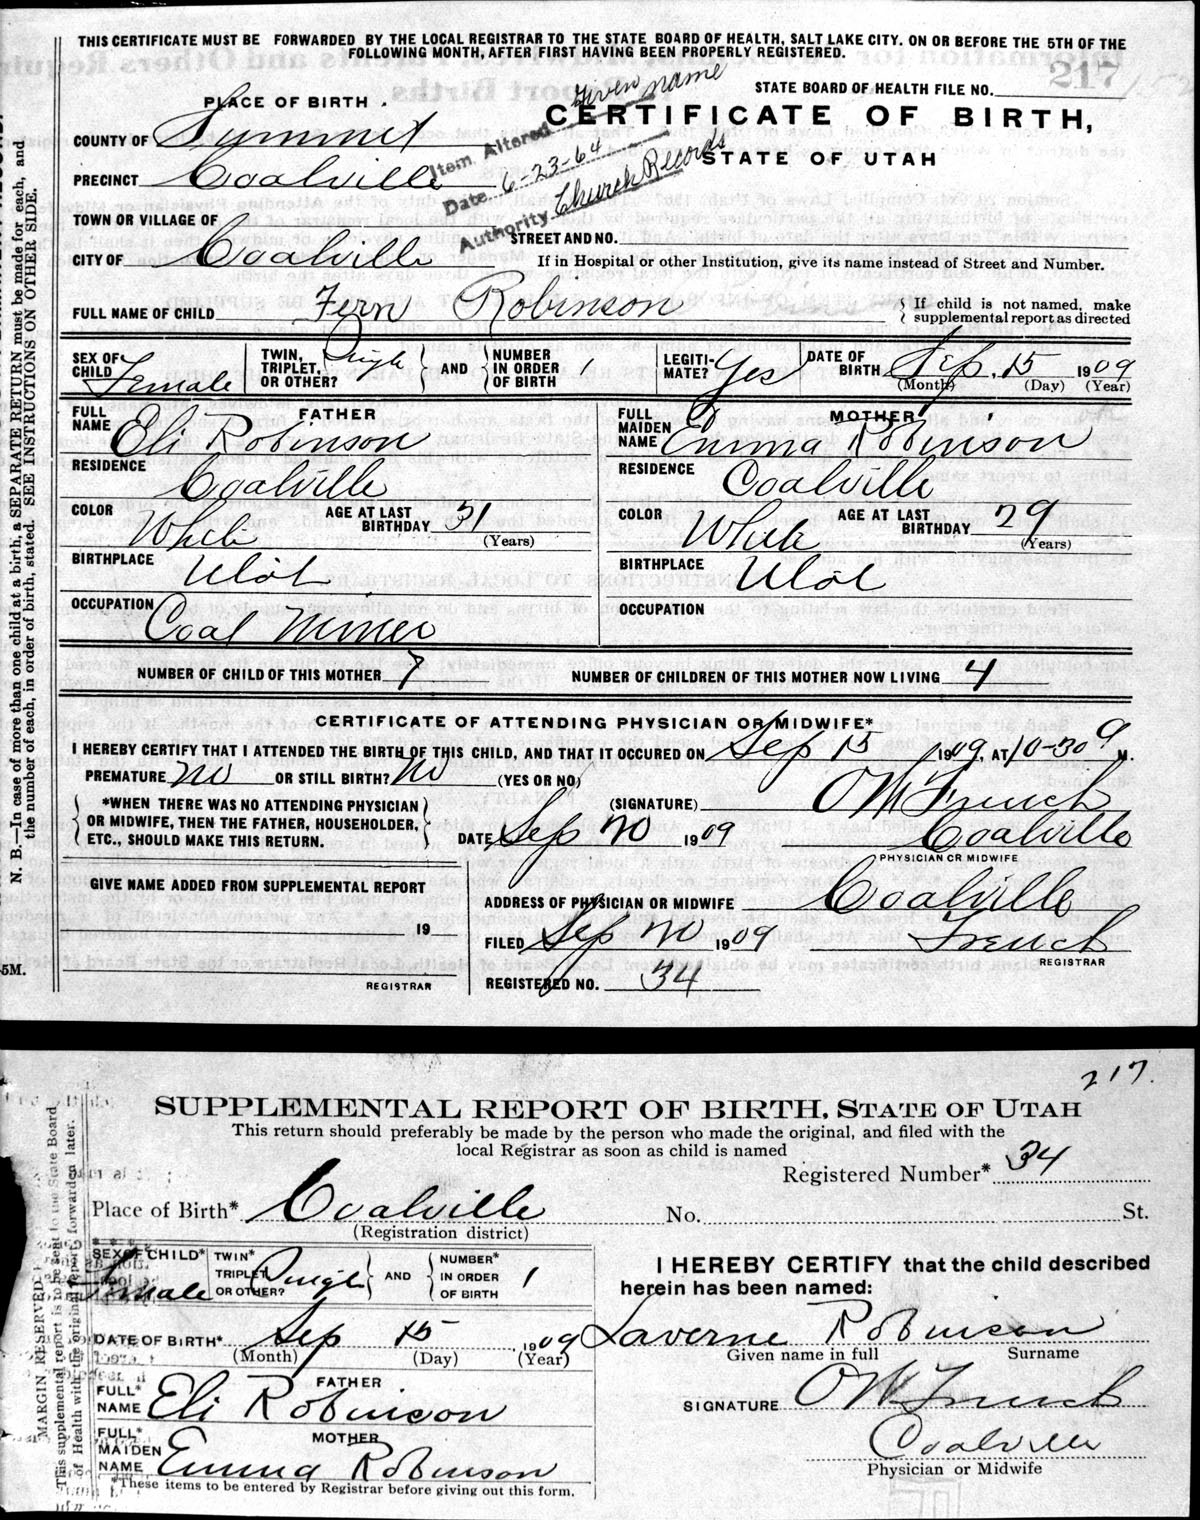 THIS CERTIFICATE MUST BE FORWARDED BY THE LOCAL REGISTRAR TO THE STATE BOARD OF HEALTH, SALT LAKE CITY, ON OR BEFORE THE 5TH OF THE
FOLLOWING MONTH, AFTER FIRST HAVING BEEN PROPERLY REGISTERED.
217
STATE BOARD OF HEALTH FILE NO.
PLACE OF BIRTH.
CERTIFICATE OF BIRTH,
STATE OF UTAH
Item Altered Given name
Date 6-23-64
Authority Church Records
COUNTY OF Summit
PRECINCT Coalville
TOWN OR VILLAGE OF
STREET AND NO.
CITY OF Coalville
If in Hospital or other Institution, give its name instead of Street and Number.
FULL NAME OF CHILD Fern Robinson
If child is not named, make
supplemental report as directed
SEX OF CHILD Female
TWIN, TRIPLET, OR OTHER? Single
AND
NUMBER IN ORDER OF BIRTH 1
LEGITI-MATE? Yes
DATE OF BIRTH Sep. 15 1909
(Month) (Day) (Year)
FATHER
FULL NAME Eli Robinson
RESIDENCE Coalville
COLOR White
AGE AT LAST BIRTHDAY 31
(Years)
BIRTHPLACE Utah
OCCUPATION Coal Miner
MOTHER
FULL MAIDEN NAME Emma Robinson
RESIDENCE Coalville
COLOR White
AGE AT LAST BIRTHDAY 29
(Years)
BIRTHPLACE Utah
OCCUPATION
NUMBER OF CHILD OF THIS MOTHER 7
NUMBER OF CHILDREN OF THIS MOTHER NOW LIVING 4
CERTIFICATE OF ATTENDING PHYSICIAN OR MIDWIFE*
I HEREBY CERTIFY THAT I ATTENDED THE BIRTH OF THIS CHILD, AND THAT IT OCCURED ON Sep 15 1909, AT 10-30 a M.
PREMATURE No OR STILL BIRTH? No (YES OR NO)
*WHEN THERE WAS NO ATTENDING PHYSICIAN
OR MIDWIFE, THEN THE FATHER, HOUSEHOLDER,
ETC., SHOULD MAKE THIS RETURN.
(SIGNATURE) O W French
DATE Sep 20 1909 Coalville
PHYSICIAN OR MIDWIFE
GIVE NAME ADDED FROM SUPPLEMENTAL REPORT
19
REGISTRAR
ADDRESS OF PHYSICIAN OR MIDWIFE Coalville
FILED Sep 20 1909 French
REGISTRAR
REGISTERED NO. 34
N. B.—In case of more than one child at a birth, a SEPARATE RETURN must be made for each, and
the number of each, in order of birth, stated. SEE INSTRUCTIONS ON OTHER SIDE.
5M.
217.
SUPPLEMENTAL REPORT OF BIRTH, STATE OF UTAH
This return should preferably be made by the person who made the original, and filed with the
local Registrar as soon as child is named
Registered Number* 34
Place of Birth* Coalville No. St.
(Registration district)
SEX OF CHILD* Female
TWIN* TRIPLET OR OTHER? Single
AND
NUMBER* IN ORDER OF BIRTH 1
I HEREBY CERTIFY that the child described
herein has been named:
DATE OF BIRTH* Sep 15 1909
(Month) (Day) (Year)
Laverne Robinson
Given name in full Surname
FATHER
FULL* NAME Eli Robinson
MOTHER
FULL* MAIDEN NAME Emma Robinson
*These items to be entered by Registrar before giving out this form.
SIGNATURE O W French
Coalville
Physician or Midwife
MARGIN RESERVED
This supplemental report is to be sent to the State Board
of Health with the original report, or forwarded later.